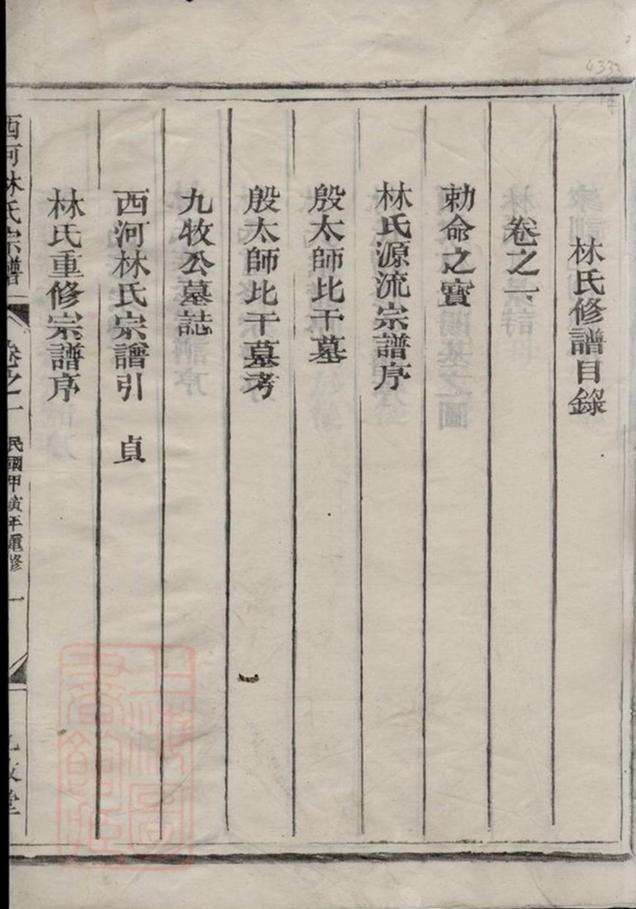 林氏修譜目錄
卷之一
勅命之寶
林氏源流宗譜序
殷太師比干墓
殷太師比干墓考
九牧公墓誌
西河林氏宗譜引 貞
林氏重修宗譜序
西河林氏宗譜
卷之一
民國甲寅年重修
一
九牧堂